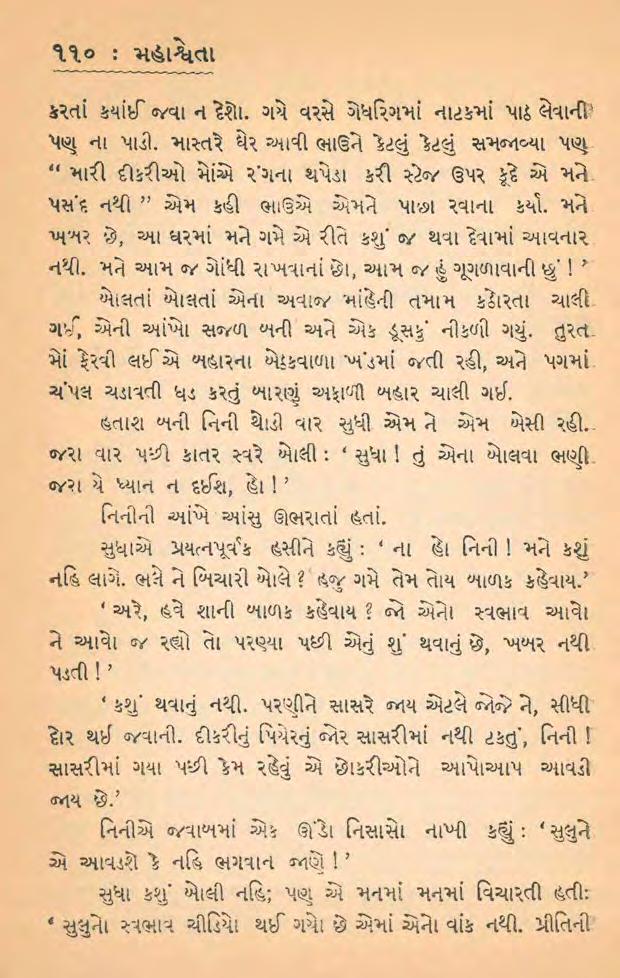 ૧૧૦ : મહાશ્વેતા
કરતાં કયાંઈ જવા ન દેશો. ગયે વરસે ગેધરિંગમાં નાટકમાં પાઠ લેવાની
પણ ના પાડી. માસ્તરે ઘેર આવી ભાઉને કેટલું કેટલું સમજાવ્યા પણ
“ મારી દીકરીઓ મોંએ રંગના થપેડા કરી સ્ટેજ ઉપર કૂદે એ મને
પસંદ નથી ” એમ કહી ભાઉએ એમને પાછા રવાના કર્યા. મને
ખબર છે, આ ઘરમાં મને ગમે એ રીતે કશું જ થવા દેવામાં આવનાર
નથી. મને આમ જ ગોંધી રાખવાનાં છો, આમ જ હું ગૂગળાવાની છું ! ’
બોલતાં બોલતાં એના અવાજ માંહેની તમામ કઠોરતા ચાલી
ગઈ, એની આંખો સજળ બની અને એક ડૂસકું નીકળી ગયું. તુરત
મોં ફેરવી લઈ એ બહારના બેઠકવાળા ખંડમાં જતી રહી, અને પગમાં
ચંપલ ચડાવતી ધડ કરતું બારણું અફાળી બહાર ચાલી ગઈ.
હતાશ બની નિની થોડી વાર સુધી એમ ને એમ બેસી રહી.
જરા વાર પછી કાતર સ્વરે બોલી : ‘ સુધા ! તું એના બોલવા ભણી
જરા યે ધ્યાન ન દઈશ, હો ! ’
નિનીની આંખે આંસુ ઊભરાતાં હતાં.
સુધાએ પ્રયત્નપૂર્વક હસીને કહ્યું : ‘ ના હો નિની ! મને કશું
નહિ લાગે. ભલે ને બિચારી બોલે ? હજુ ગમે તેમ તોય બાળક કહેવાય.’
‘ અરે, હવે શાની બાળક કહેવાય ? જો એનો સ્વભાવ આવો
ને આવો જ રહ્યો તો પરણ્યા પછી એનું શું થવાનું છે, ખબર નથી
પડતી ! ’
‘ કશું થવાનું નથી. પરણીને સાસરે જાય એટલે જોજે ને, સીધી
દોર થઈ જવાની. દીકરીનું પિયેરનું જોર સાસરીમાં નથી ટકતું, નિની !
સાસરીમાં ગયા પછી કેમ રહેવું એ છોકરીઓને આપોઆપ આવડી
જાય છે.’
નિનીએ જવાબમાં એક ઊંડો નિસાસો નાખી કહ્યું : ‘ સુલુને
એ આવડશે કે નહિ ભગવાન જાણે ! ’
સુધા કશું બોલી નહિ; પણ એ મનમાં મનમાં વિચારતી હતી:
‘ સુલુનો સ્વભાવ ચીડિયો થઈ ગયો છે એમાં એનો વાંક નથી. પ્રીતિની